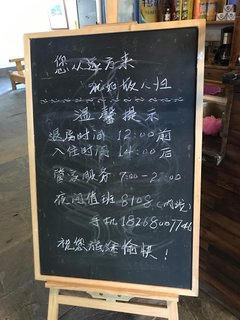 您从远方来
犹如故人归
温馨提示
退房时间 12:00前
入住时间 14:00后
管家服务 7:00-2 :00
夜间值班 8108 (内线)
手机 18268007746
祝您旅途愉快!